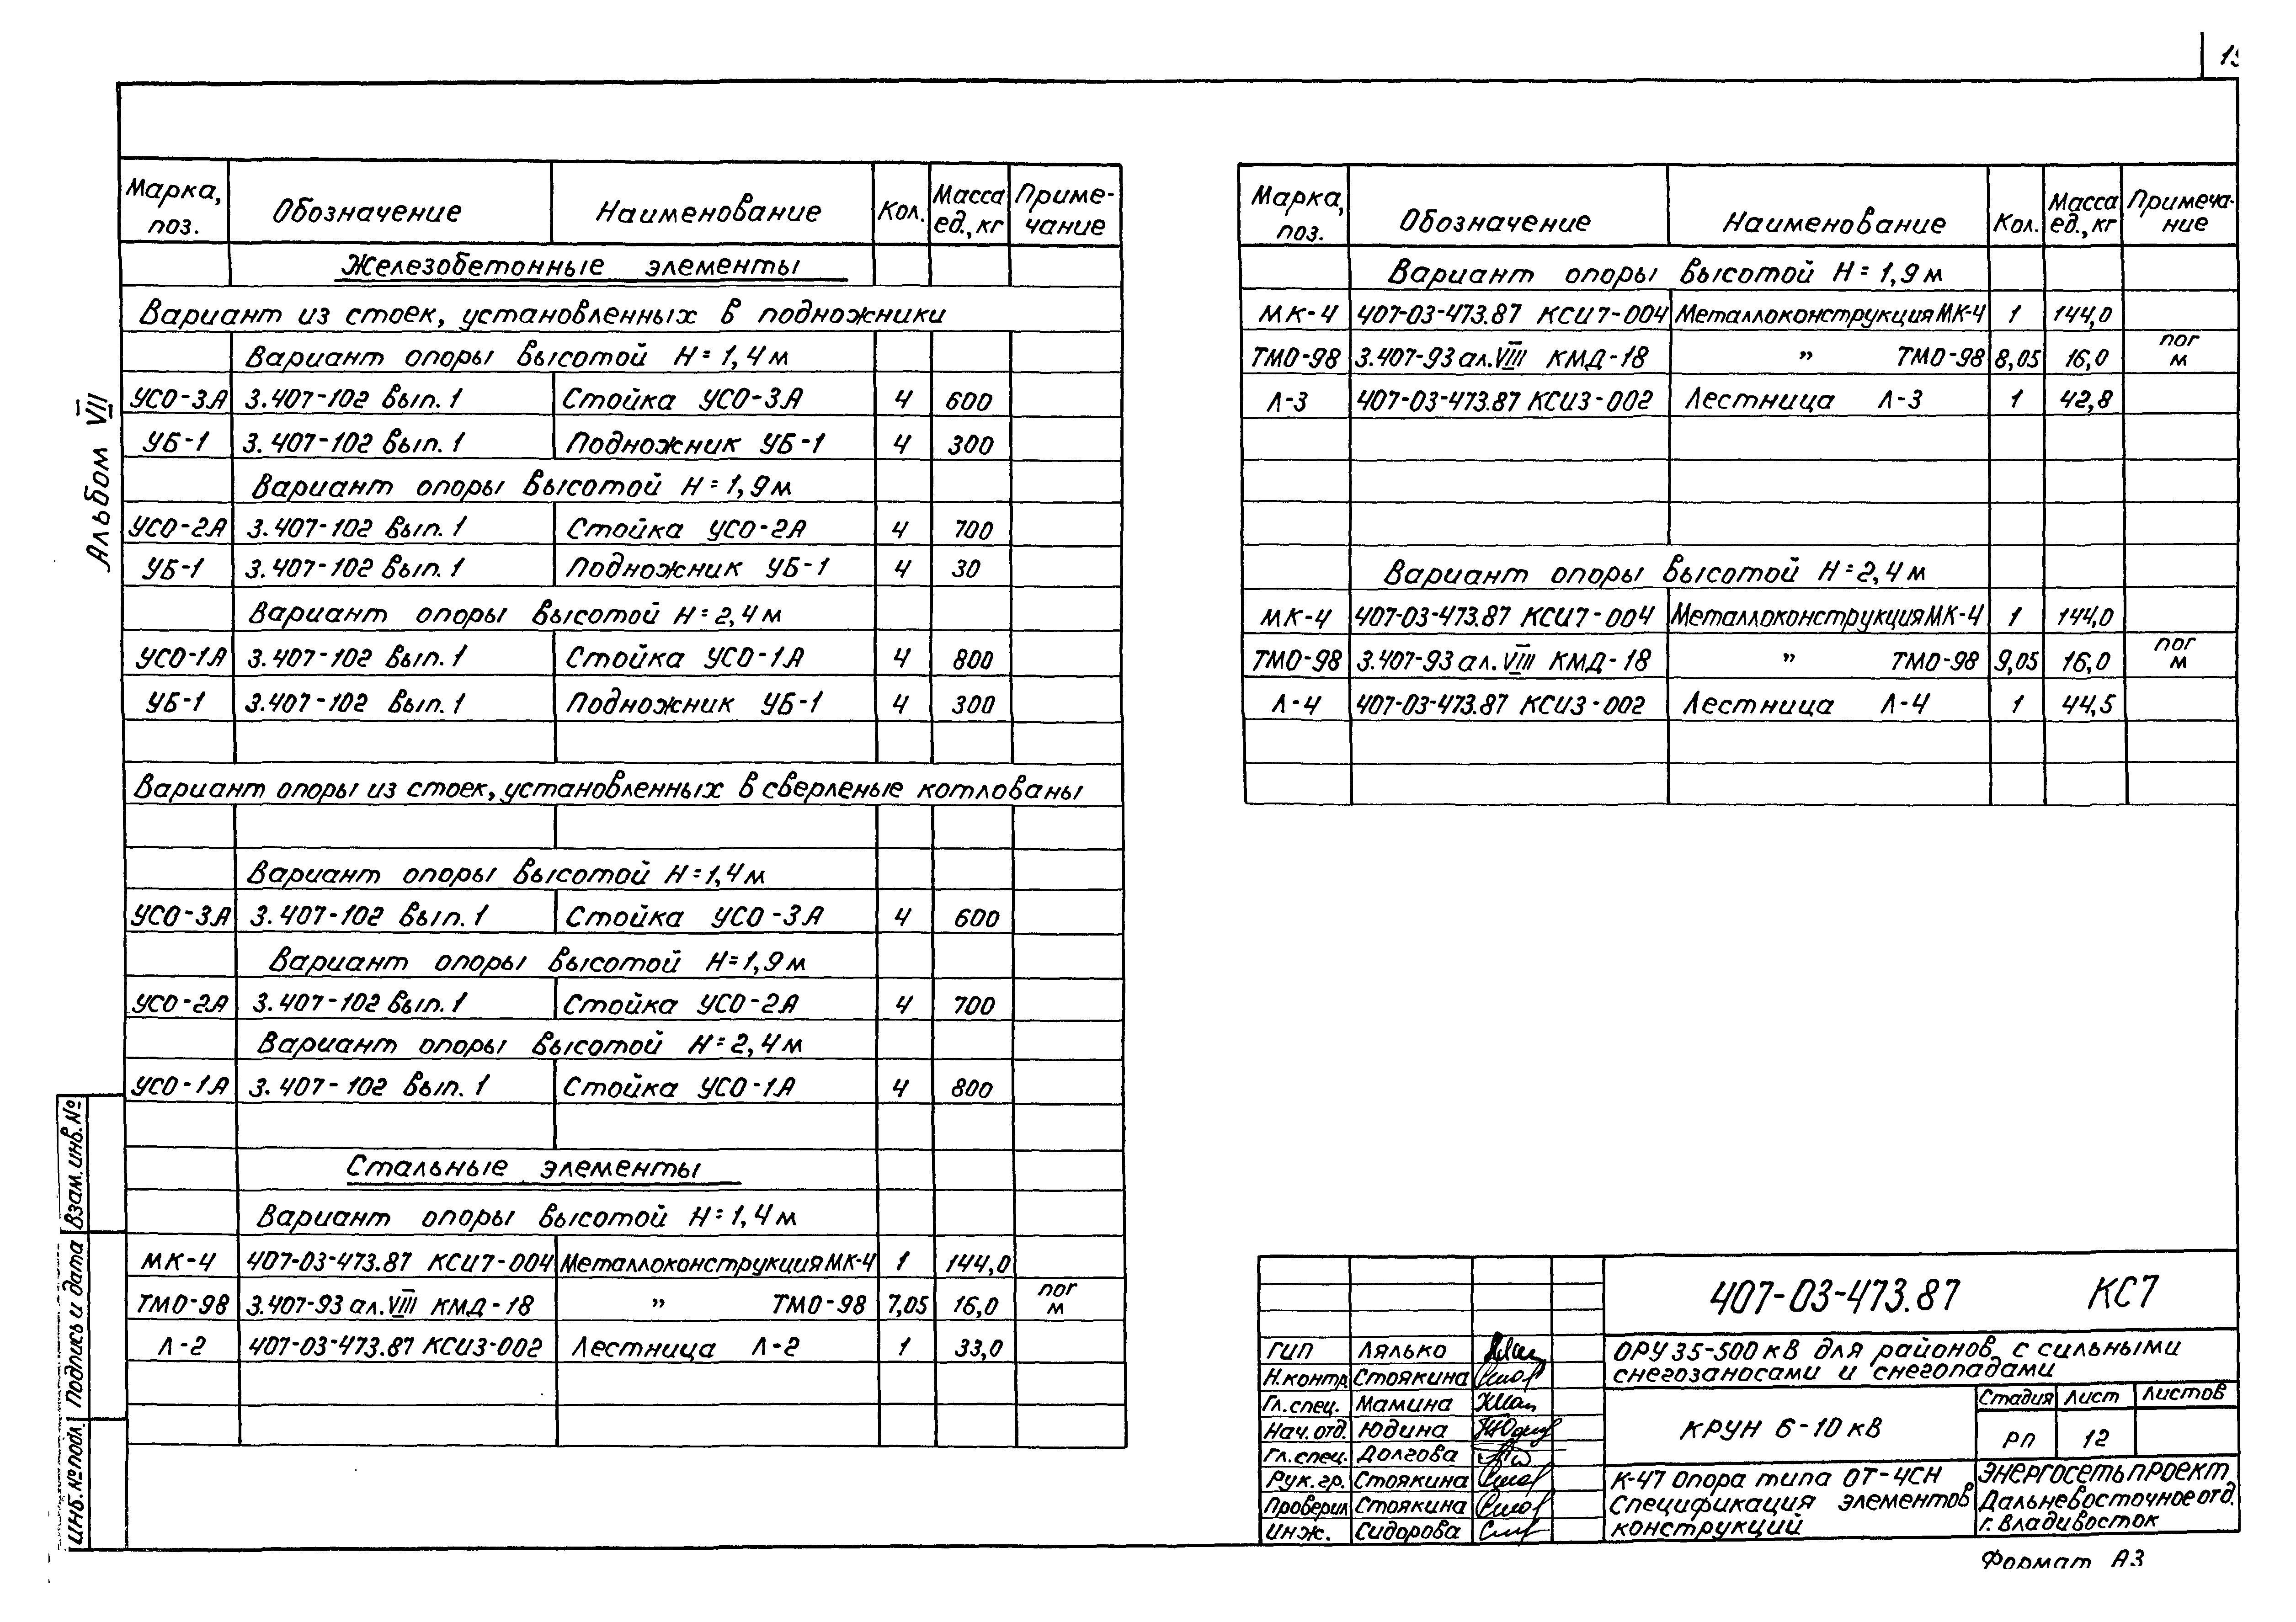 Альбом VII
Марка, поз. Обозначение Наименование Кол. Масса ед., кг Приме-чание
Железобетонные элементы
Вариант из стоек, установленных в подножники
Вариант опоры высотой Н=1,4м
УСО-3А 3.407-102 Вып. 1 Стойка УСО-3А 4 600
УБ-1 3.407-102 Вып. 1 Подножник УБ-1 4 300
Вариант опоры высотой Н=1,9м
УСО-2А 3.407-102 Вып. 1 Стойка УСО-2А 4 700
УБ-1 3.407-102 Вып. 1 Подножник УБ-1 4 30
Вариант опоры высотой Н=2,4м
УСО-1А 3.407-102 Вып. 1 Стойка УСО-1А 4 800
УБ-1 3.407-102 Вып. 1 Подножник УБ-1 4 300
Вариант опоры из стоек, установленных в сверленые котлованы
Вариант опоры высотой Н=1,4м
УСО-3А 3.407-102 Вып. 1 Стойка УСО-3А 4 600
Вариант опоры высотой Н=1,9м
УСО-2А 3.407-102 Вып. 1 Стойка УСО-2А 4 700
Вариант опоры высотой Н=2,4м
УСО-1А 3.407-102 Вып. 1 Стойка УСО-1А 4 800
Стальные элементы
Вариант опоры высотой Н=1,4м
МК-4 407-03-473.87 КСИ7-004 Металлоконструкция МК-4 1 144,0
ТМО-98 3.407-93 ал. VIII КМД-18 " ТМО-98 7,05 16,0 пог м
Л-2 407-03-473.87 КСИ3-002 Лестница Л-2 1 33,0
Марка, поз. Обозначение Наименование Кол. Масса ед., кг Примеча-ние
Вариант опоры высотой Н=1,9м
МК-4 407-03-473.87 КСИ7-004 Металлоконструкция МК-4 1 144,0
ТМО-98 3.407-93 ал. VIII КМД-18 " ТМО-98 8,05 16,0 пог м
Л-3 407-03-473.87 КСИ3-002 Лестница Л-3 1 42,8
Вариант опоры высотой Н=2,4м
МК-4 407-03-473.87 КСИ7-004 Металлоконструкция МК-4 1 144,0
ТМО-98 3.407-93 ал. VIII КМД-18 " ТМО-98 9,05 16,0 пог м
Л-4 407-03-473.87 КСИ3-002 Лестница Л-4 1 44,5
Взам. инв. №
Подпись и дата
Инв. № подл.
407-03-473.87 КС7
ГИП Лялько
Н.контр. Стоякина
Гл.спец. Мамина
Нач.отд. Юдина
Гл.спец. Долгова
Рук.гр. Стоякина
Проверил Стоякина
Инж. Сидорова
ОРУ 35-500 кВ для районов с сильными
снегозаносами и снегопадами
КРУН 6-10 кВ
Стадия Лист Листов
РП 12
К-47 Опора типа ОТ-4СН
Спецификация элементов
конструкций
Энергосетьпроект
Дальневосточное отд.
г. Владивосток
Формат А3